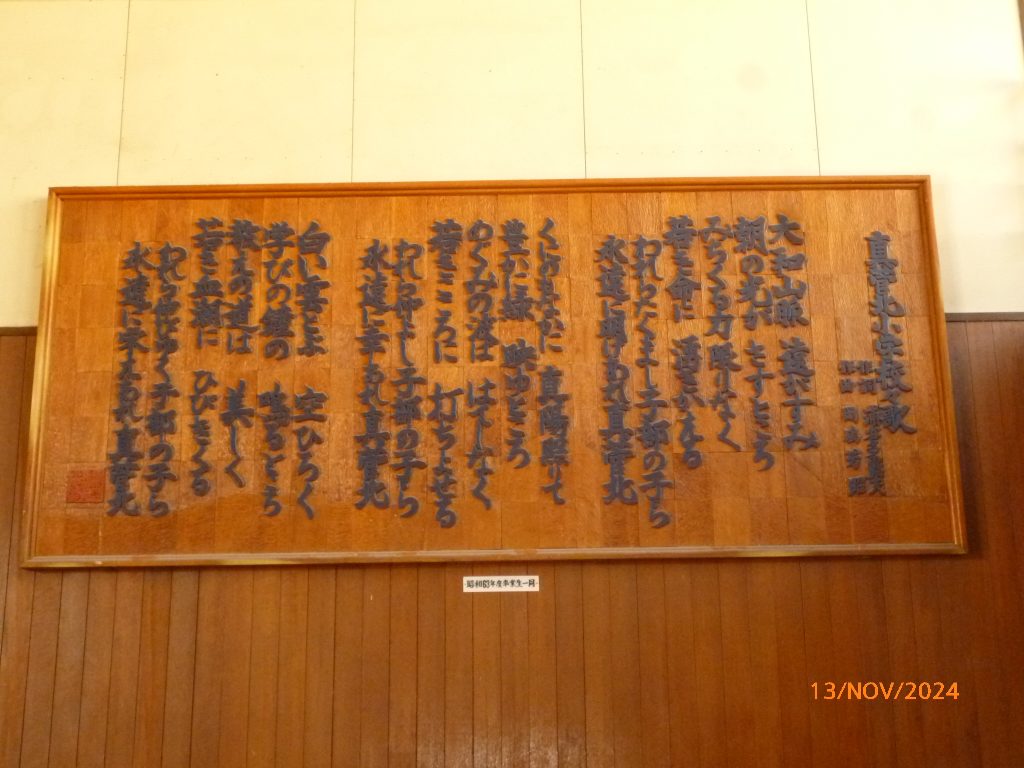 真菅北小学校々歌
大和山脈 遠がすみ
朝の光が さすところ
みちくる力 限りなく
若き命に 湧きかえる
われらたくまし 子部の子ら
永遠に明けあれ 真菅北
くしのまなだ 真陽照りて
豊かに緑 映ゆところ
めぐみの波は はてしなく
若きこころに 打ちよせる
われらけよし 子部の子ら
永遠に幸あれ 真菅北
白い雲よぶ 空ひろく
学びの鐘の 鳴るところ
教えの道は 美しく
若き血潮に ひびきくる
われら
子部の子ら
永遠に栄えあれ 真菅北
昭和63年度卒業生一同
13/NOV/2024